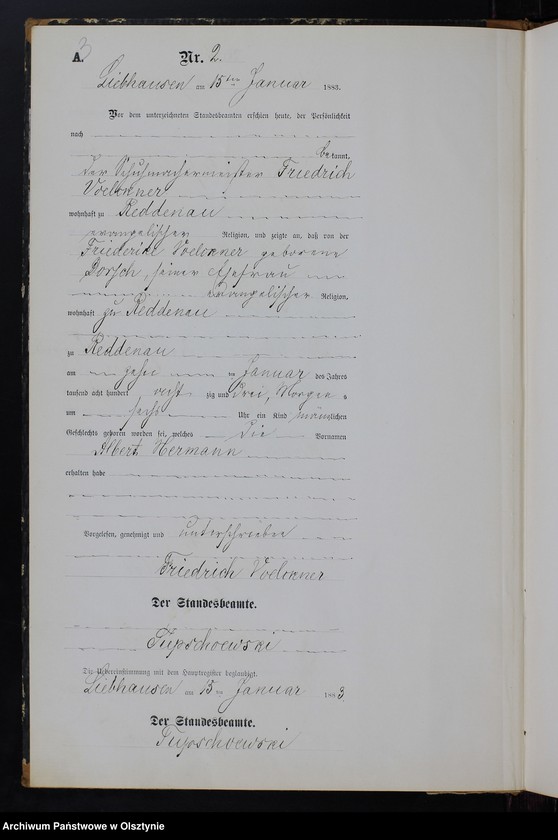 3
A. Nr. 2.
Liebhausen am 15ten Januar 1883.
Vor dem unterzeichneten Standesbeamten erschien heute, der Persönlichkeit
nach
bekannt,
der Schuhmachermeister Friedrich
Voelkner
wohnhaft zu Reddenau
evangelischer Religion, und zeigte an, daß von der
Friederike Voelkner geborene
Dorsch, seiner Ehefrau
evangelischer Religion,
wohnhaft zu Reddenau
zu Reddenau
am zehn ten Januar des Jahres
tausend acht hundert acht zig und drei, Morgens
um sechs Uhr ein Kind männlichen
Geschlechts geboren worden sei, welches die Vornamen
Albert Hermann
erhalten habe
Vorgelesen, genehmigt und unterschrieben
Friedrich Voelkner
Der Standesbeamte.
Die Uebereinstimmung mit dem Hauptregister beglaubigt.
Liebhausen am 15ten Januar 1883.
Der Standesbeamte.
Archiwum Państwowe w Olsztynie